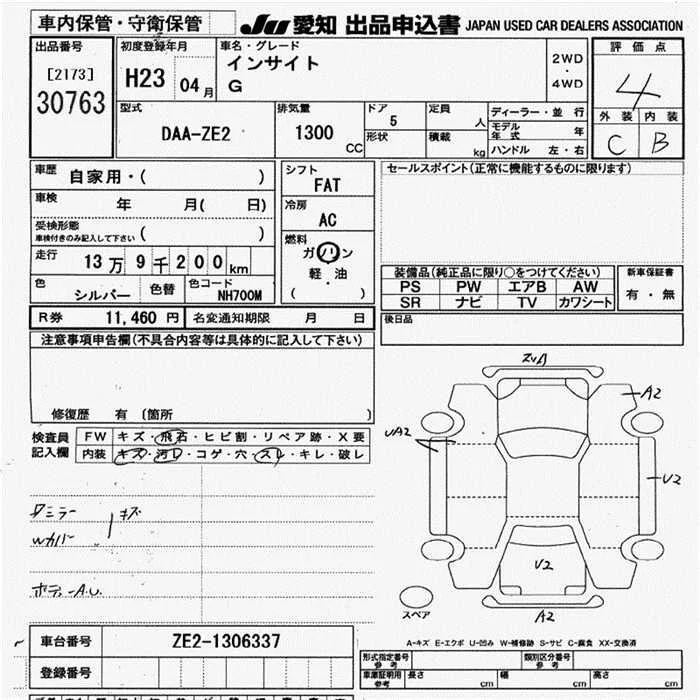 車内保管・守衛保管
JU 愛知 出品申込書 JAPAN USED CAR DEALERS ASSOCIATION
出品番号
[2173]
30763
初度登録年月
H23 04月
車名・グレード
インサイト
G
2WD
・
4WD
評価点
4
外装 内装
C B
型式
DAA-ZE2
排気量
1300
CC
ドア
5
形状
定員
人
積載
kg
ディーラー・並行
モデル年式 年
ハンドル 左・右
車歴
自家用・( )
車検
年 月( 日)
受検形態
車検付きのみ記入して下さい ( )
走行
13万9千200km
色
シルバー
色替
色コード
NH700M
シフト
FAT
冷房
AC
燃料
ガソリン
軽・油
( )
セールスポイント(正常に機能するものに限ります)
装備品(純正品に限り○をつけてください)
PS PW エアB AW
SR ナビ TV カワシート
新車保証書
有・無
R券 11,460円 名変通知期限 月 日
後日品
注意事項申告欄(不具合内容等は具体的に記入して下さい)
修復歴 有 〔箇所 〕
検査員
記入欄
FW キズ・飛石・ヒビ割・リペア跡・X要
内装 キズ・汚レ・コゲ・穴・スレ・キレ・破レ
A2
UA2
U2
U2
A2
スペア
ミラー
Wカバー
キズ
ボデーA.U.
A-キズ E-エクボ U-凹み W-補修跡 S-サビ C-腐食 XX-交換済
車台番号 ZE2-1306337
登録番号
形式指定番号
参考
類別区分番号
参考
車庫証明用
参考
長さ cm 幅 cm 高さ cm